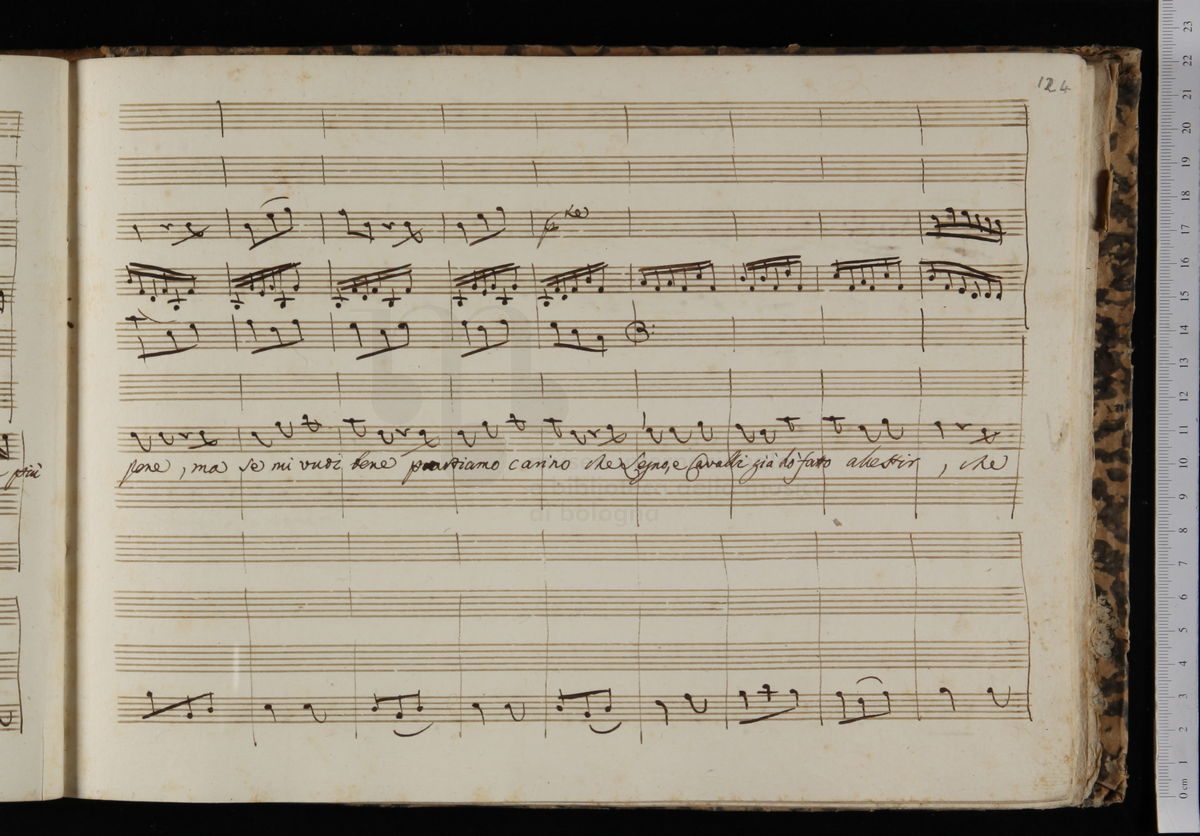 124
pene, ma se mi vuoi bene partiamo carino che Legno, e Cavalli già hò fatto allestir, che
più
di bologna
23
22
21
20
19
18
17
16
15
14
13
12
11
10
9
8
7
6
5
4
3
2
1
0 cm